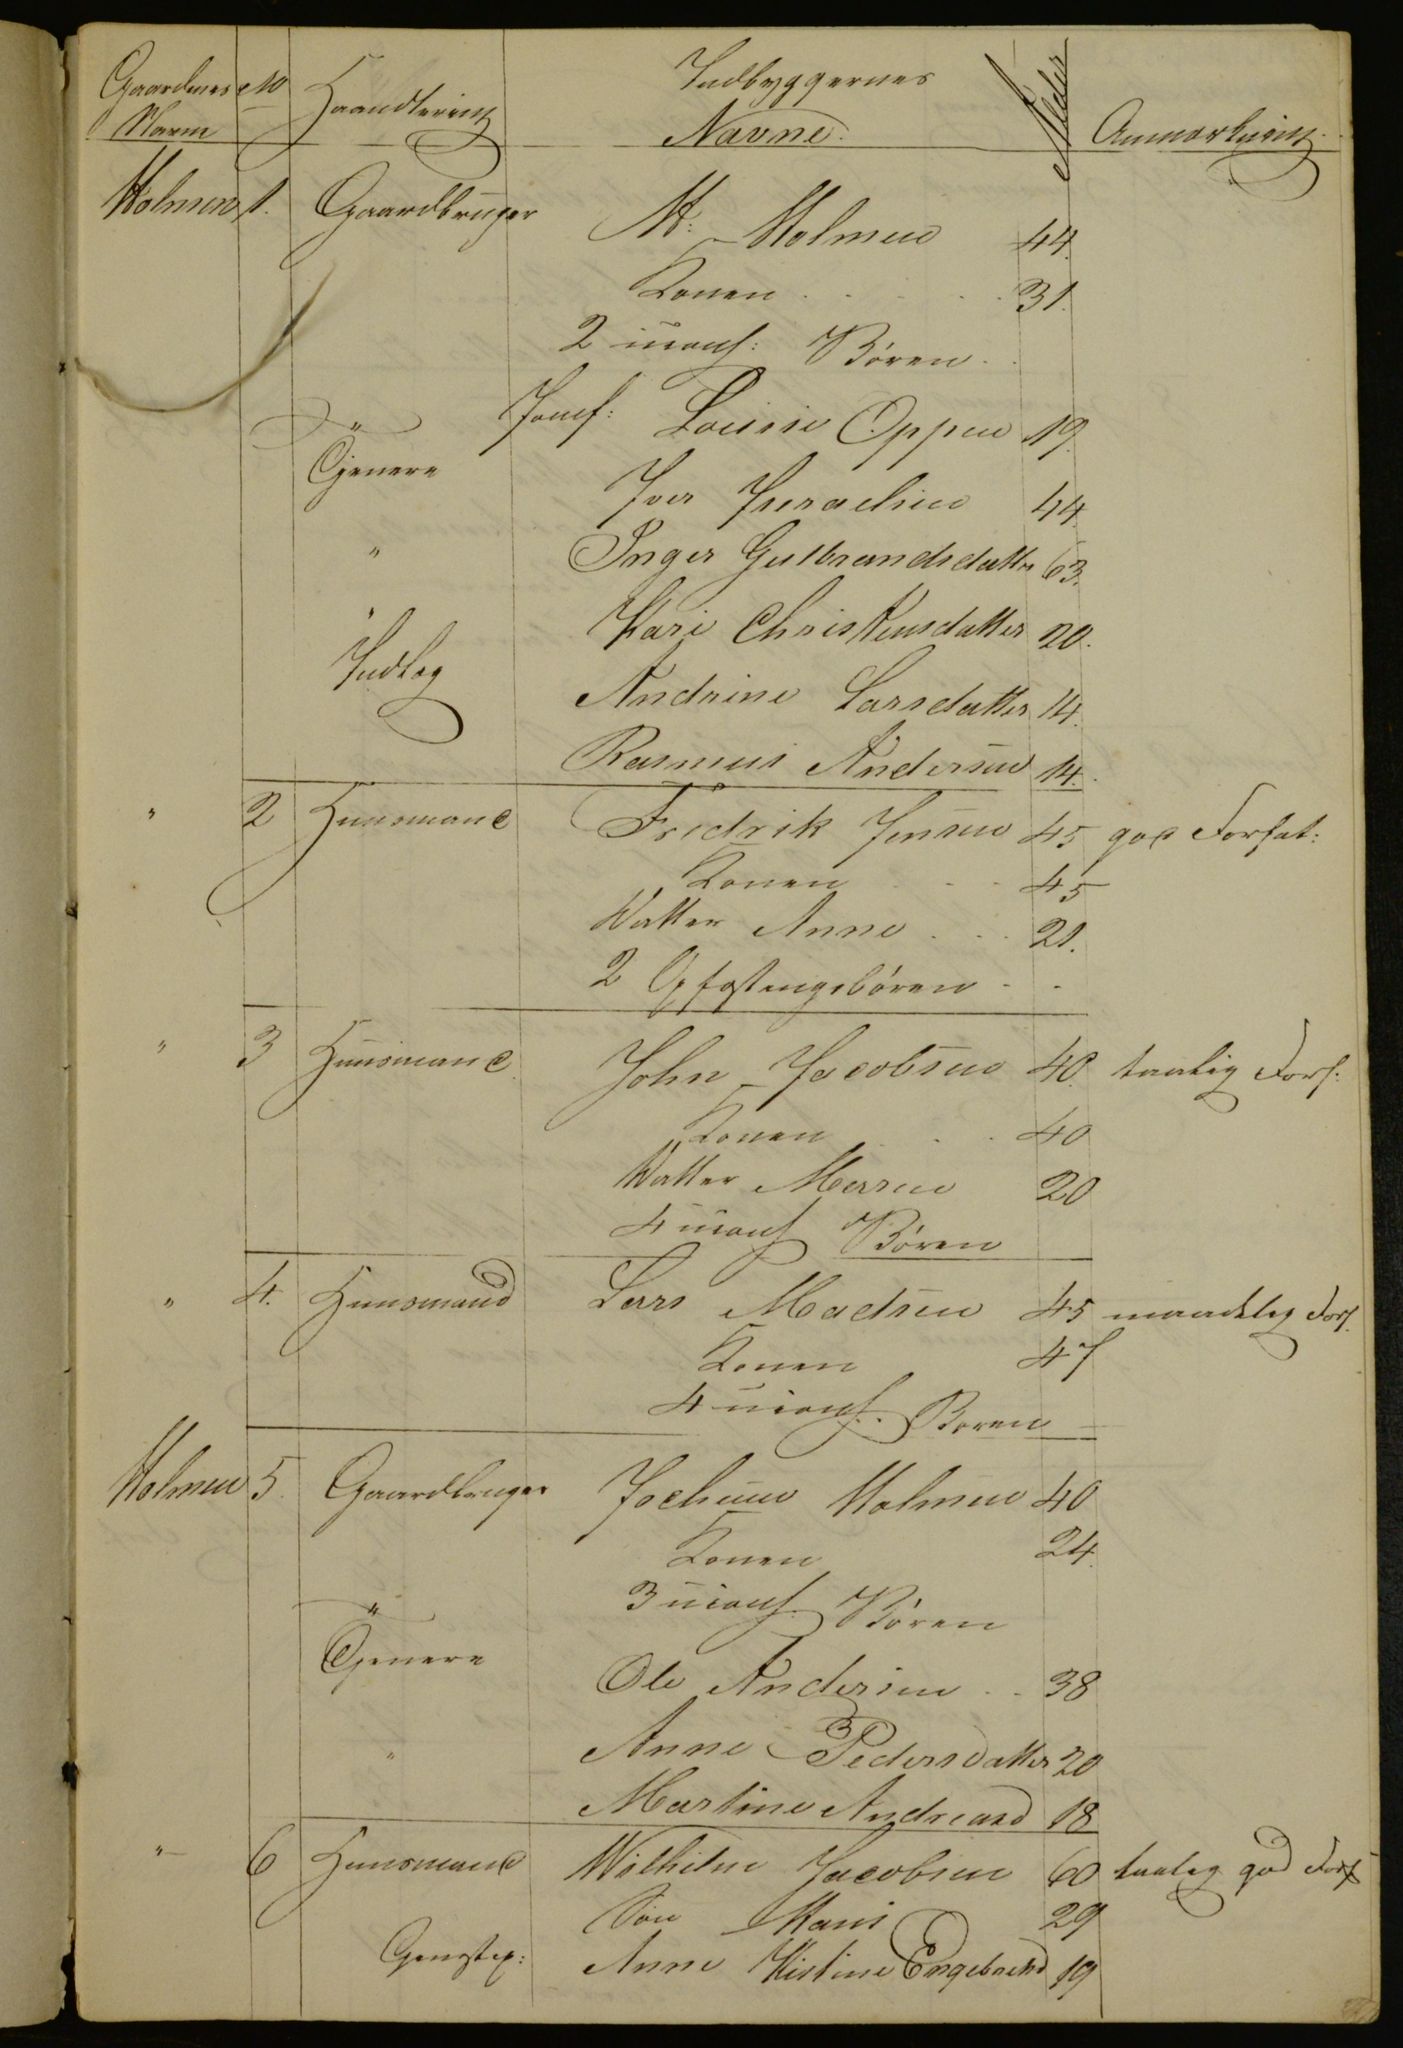 Gaardenes No Haandtering Indbyggernes Alder Anmærkning
Navn Navne
Holmen 1. Gaardbruger H: Holmen 44.
Konen . . . . 31.
2 uconf: Børen .
" Jomf: Louise Oppen 19.
Tjenere Iver Iversen 44.
" Inger Gulbrandsdatter 63.
" Kari Christensdatter 20.
Indlæg Andrine Larsdatter 14.
Rasmus Andersen 14.
" 2 Huusmand Fredrik Jensen 45 god Forfat:
Konen . . 45
Datter Anne . . . 21.
2 Opfostringsbøren . .
" 3 Huusmand John Jacobsen 40. taalig Forf.
Konen . . . 40
Datter Maren 20
4 uconf Børen
" 4. Huusmand Lars Madsen 45 maadelig Forf.
Konen 47
4 uconf: Boren
Holmen 5. Gaardbruger Jochum Holmen 40
Konen 24.
" 3 uconf. Børen
Tjenere Ole Andersen . . 38
" Anne Pedersdatter 20
Martine Andreasd 18
" 6 Huusmand Wilhelm Jacobsen 60 taalig god Forf
Søn Hans 29
Anne Kistine Engebretsd 19